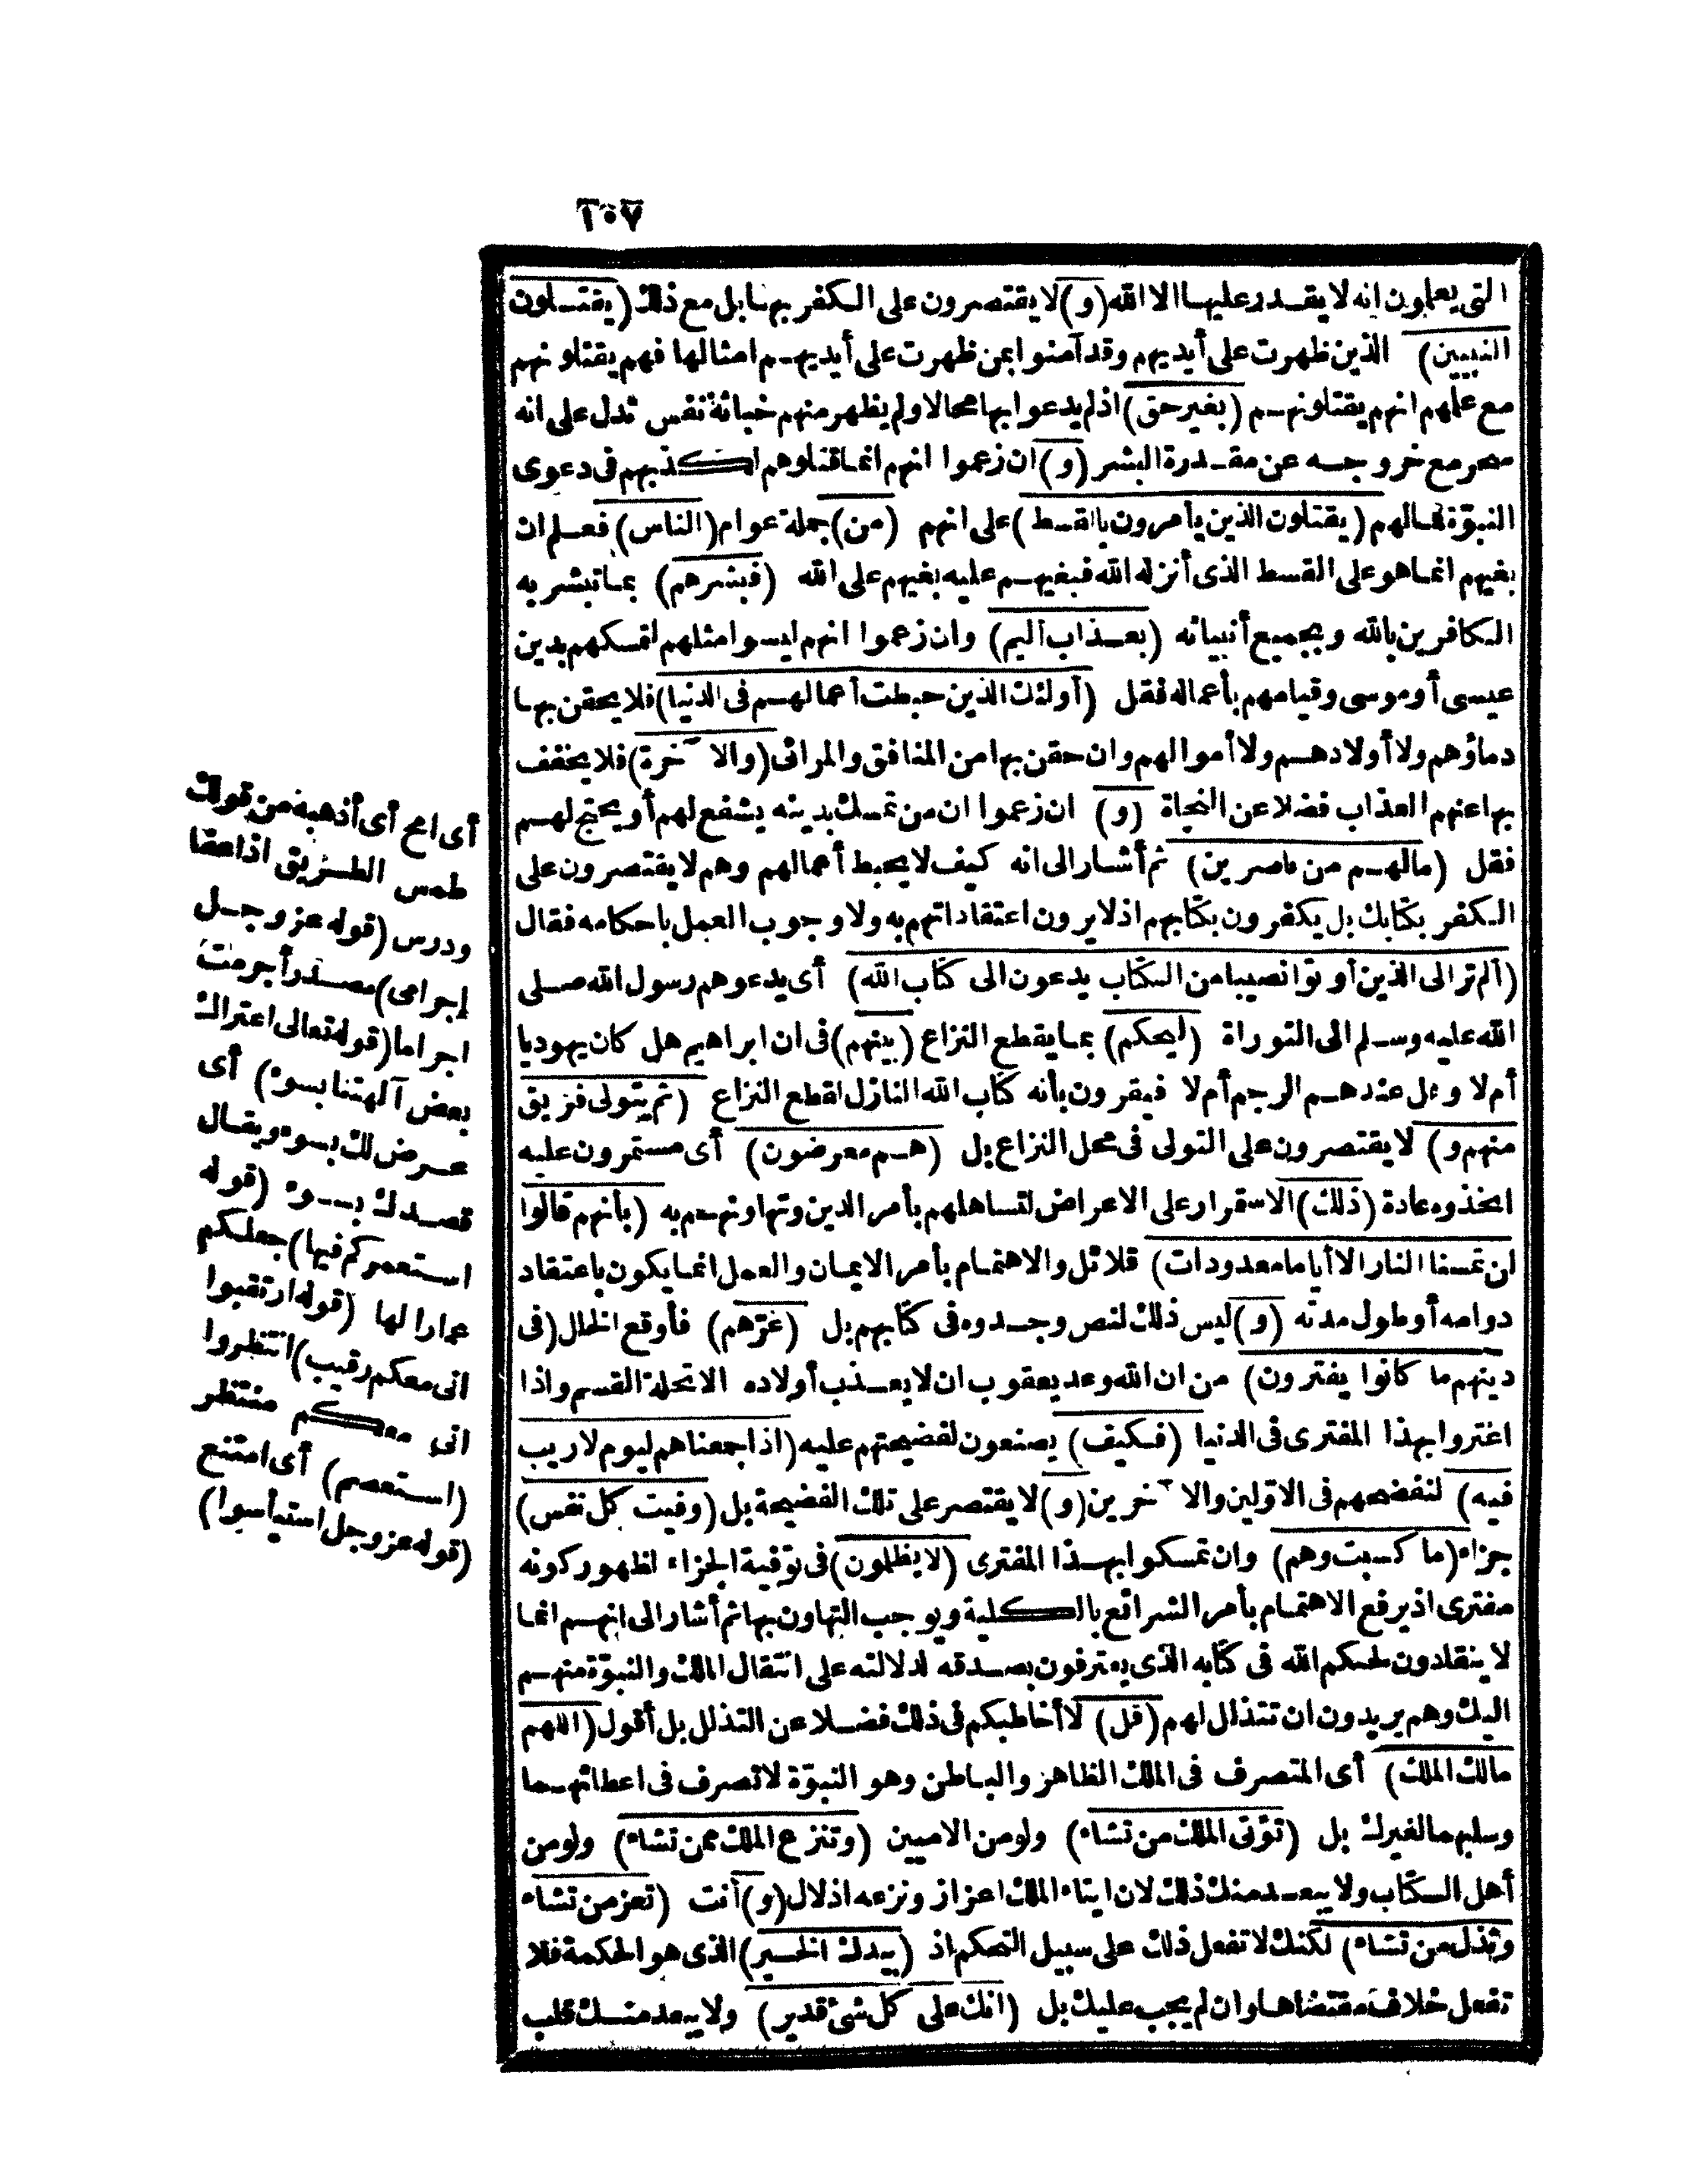 ١٠٧
التى يعلمون انه لا يقدر عليها الا الله (و) لا يقتصرون على الكفر بها بل مع ذلك (يقتلون
النبيين) الذين ظهرت على أيديهم وقد آمنوا بمن ظهرت على أيديهم امثالها فهم يقتلونهم
مع علمهم انهم يقتلونهم (بغير حق) اذ لم يدعوا بها محالا ولم يظهر منهم خباثة نفس تدل على انه
سحر مع خروجه عن مقدرة البشر (و) ان زعموا انهم انما قتلوهم لكذبهم فى دعوى
النبوّة فمالهم (يقتلون الذين يأمرون بالقسط) على انهم (من) جملة عوام (الناس) فعلم ان
بغيهم انما هو على القسط الذى أنزله الله فبغيهم عليه بغيهم على الله (فبشرهم) بما تبشر به
الكافرين بالله وبجميع أنبيائه (بعذاب أليم) وان زعموا انهم ليسوا مثلهم لتمسكهم بدين
عيسى أو موسى وقيامهم بأعماله فقل (أولئك الذين حبطت أعمالهم فى الدنيا) فلا يحقن بها
دماؤهم ولا أولادهم ولا أموالهم وان حقن بها من المنافق والمرائى (والآخرة) فلا يخفف
بها عنهم العذاب فضلا عن النجاة (و) ان زعموا ان من تمسك بدينه يشفع لهم أو يحتج لهم
فقل (مالهم من ناصرين) ثم أشار الى انه كيف لا يحبط أعمالهم وهم لا يقتصرون على
الكفر بكتابك بل يكفرون بكتابهم اذ لا يرون اعتقاداتهم به ولا وجوب العمل باحكامه فقال
(ألم تر الى الذين أوتوا نصيبا من الكتاب يدعون الى كتاب الله) أى يدعوهم رسول الله صلى
الله عليه وسلم الى التوراة (ليحكم) بما يقطع النزاع (بينهم) فى ان ابراهيم هل كان يهوديا
أم لا وهل عندهم الرجم أم لا فيقرون بأنه كتاب الله النازل لقطع النزاع (ثم يتولى فريق
منهم و) لا يقتصرون على التولى فى محل النزاع بل (هم معرضون) أى مستمرون عليه
اتخذوه عادة (ذلك) الاستقرار على الاعراض لتساهلهم بأمر الدين وتهاونهم به (بأنهم قالوا
لن تمسنا النار الا أياما معدودات) قلائل والاهتمام بأمر الايمان والعمل انما يكون باعتقاد
دوامه أو طول مدته (و) ليس ذلك لنص وجدوه فى كتابهم بل (غرّهم) فأوقع الخلل (فى
دينهم ما كانوا يفترون) من ان الله وعد يعقوب ان لا يعذب أولاده الا تحلة القسم واذا
اغتروا بهذا المفترى فى الدنيا (فكيف) يصنعون لفضيحتهم عليه (اذا جمعناهم ليوم لا ريب
فيه) لنفضحهم فى الاوّلين والآخرين (و) لا يقتصر على تلك الفضيحة بل (وفيت كل نفس)
جزاء (ما كسبت وهم) وان تمسكوا بهذا المفترى (لا يظلمون) فى توفية الجزاء لظهور كونه
مفترى اذ يرفع الاهتمام بأمر الشرائع بالكلية ويوجب التهاون بها ثم أشار الى انهم انما
لا ينقادون لحكم الله فى كتابه الذى يعترفون بصدقه لدلالته على انتقال الملك والنبوّة منهم
اليك وهم يريدون ان تتذلل لهم (قل) لا أخاطبكم فى ذلك فضلا عن التذلل بل أقول (اللهم
مالك الملك) أى المتصرف فى الملك الظاهر والباطن وهو النبوّة لا تصرف فى اعطائهما
وسلبهما لغيرك بل (تؤتى الملك من تشاء) ولو من الاميين (وتنزع الملك ممن تشاء) ولو من
أهل الكتاب ولا يبعد منك ذلك لان ايتاء الملك اعزاز ونزعه اذلال (و) أنت (تعز من تشاء
وتذل من تشاء) لكنك لا تفعل ذلك على سبيل التحكم اذ (بيدك الخير) الذى هو الحكمة فلا
تفعل خلاف مقتضاها وان لم يجب عليك بل (انك على كل شئ قدير) ولا يبعد منك قلب
أى امح أى أذهبه من قولك
طمس الطريق اذا عفا
ودرس (قوله عز وجل
إجرامى) مصدر أجرمت
اجراما (قوله تعالى اعتراك
بعض آلهتنا بسوء) أى
عرض لك بسوء ويقال
قصدك بسوء (قوله
استعمركم فيها) جعلكم
عمارا لها (قوله ارتقبوا
انى معكم رقيب) انتظروا
انى معكم منتظر
(استعصم) أى امتنع
(قوله عز وجل استيأسوا)